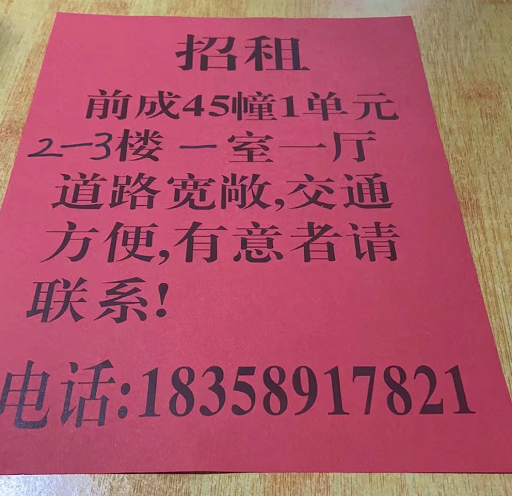 招租
前成45幢1单元
2-3楼 一室一厅
道路宽敞,交通
方便,有意者请
联系!
电话:18358917821